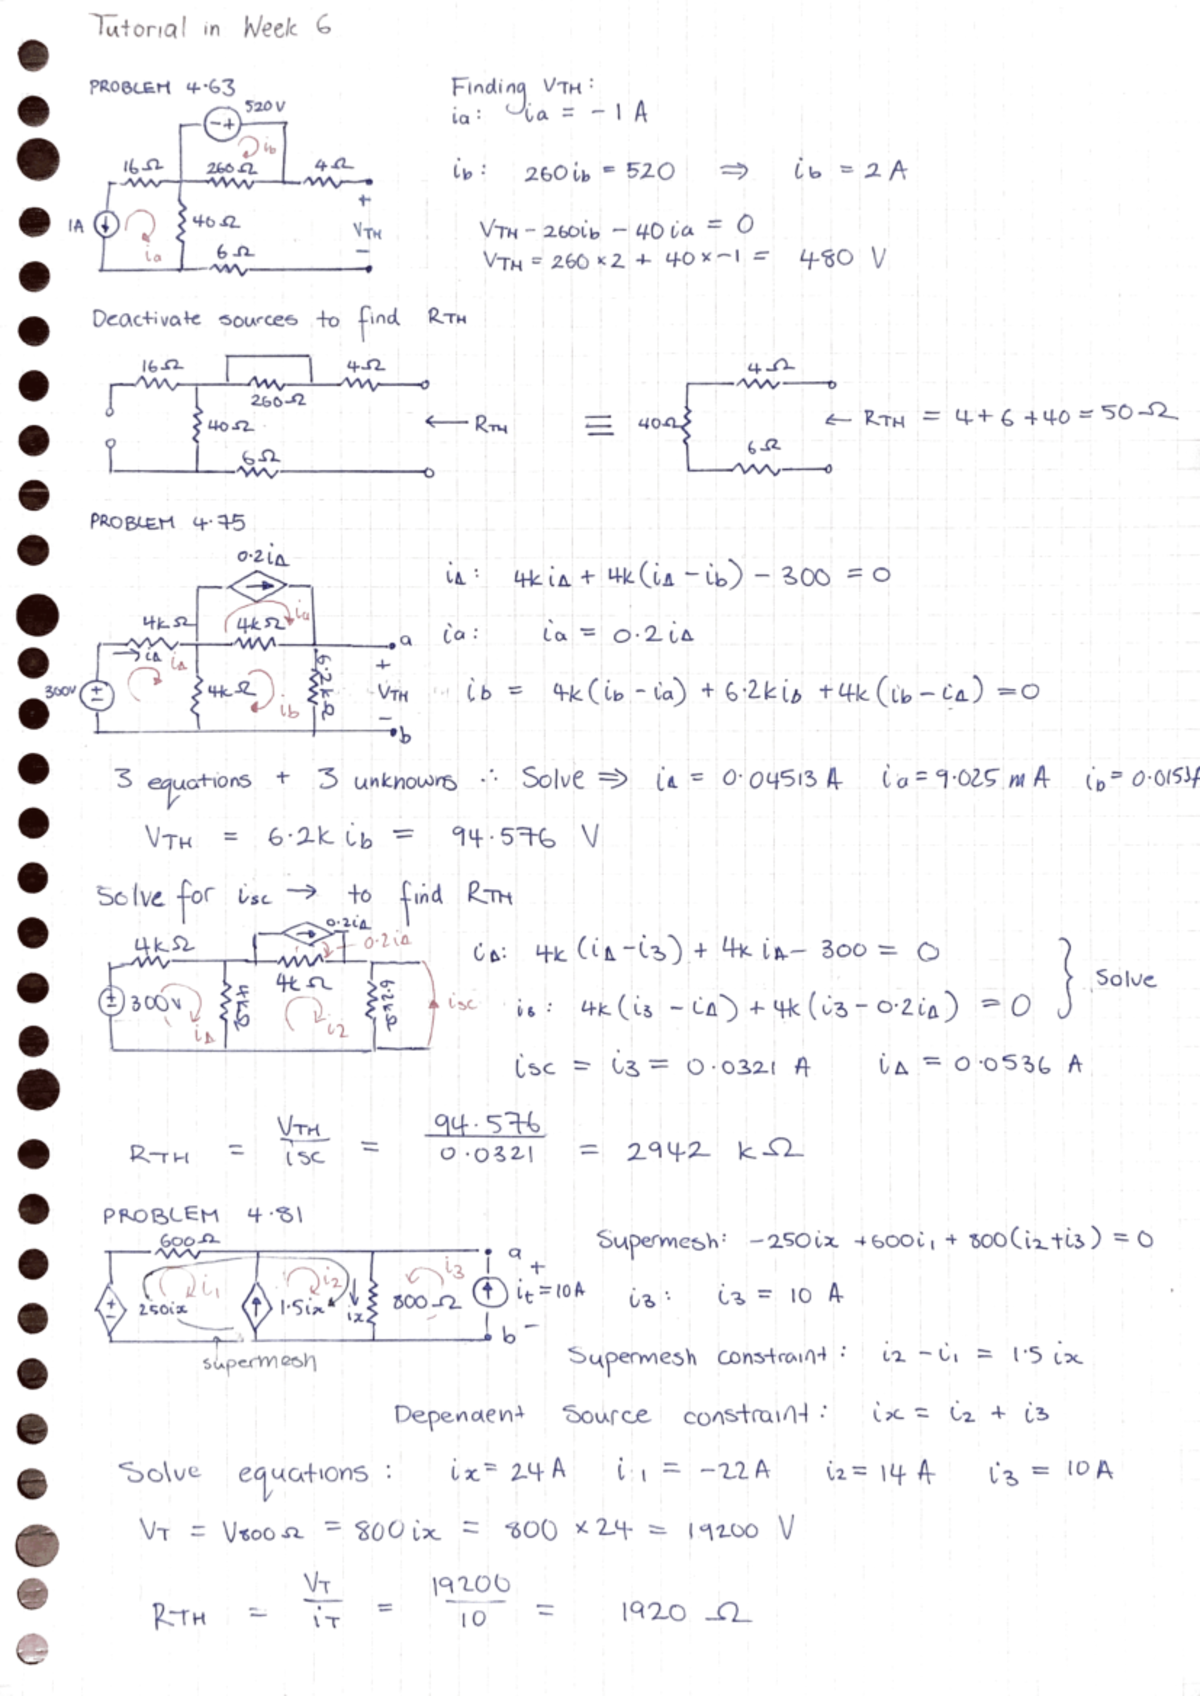 Tutorial in Week 6
PROBLEM 4.63
520V
ib
16Ω 260Ω 4Ω
1A
ia
40Ω
6Ω
+
VTH
−
Finding VTH:
ia: ia = -1 A
ib: 260ib = 520 ⇒ ib = 2A
VTH - 260ib - 40ia = 0
VTH = 260×2 + 40×-1 = 480 V
Deactivate sources to find RTH
16Ω 4Ω
260Ω
40Ω
6Ω
← RTH
≡
4Ω
40Ω
6Ω
← RTH = 4+6+40 = 50Ω
PROBLEM 4.75
0.2i∆
4kΩ 4kΩ ia
→ i∆ i∆
300V
4kΩ
ib
6.2kΩ
a
+
VTH
−
b
i∆: 4ki∆ + 4k(i∆ - ib) - 300 = 0
ia: ia = 0.2i∆
ib = 4k(ib - ia) + 6.2kib + 4k(ib - i∆) = 0
3 equations + 3 unknowns ∴ Solve ⇒ i∆ = 0.04513A ia = 9.025mA ib = 0.0153
VTH = 6.2k ib = 94.576 V
Solve for isc → to find RTH
0.2i∆
0.2i∆
4kΩ
4kΩ
300V
i∆
4kΩ
i2
6.2kΩ
isc
i∆: 4k(i∆-i3) + 4ki∆ - 300 = 0
i3: 4k(i3 - i∆) + 4k(i3 - 0.2i∆) = 0
} Solve
isc = i3 = 0.0321 A i∆ = 0.0536 A
RTH = VTH/isc = 94.576/0.0321 = 2942 kΩ
PROBLEM 4.81
600Ω
i1 i2 i3
250ix
1.5ix
ix
800Ω
a
+
it = 10A
b −
supermesh
Supermesh: -250ix + 600i1 + 800(i2+i3) = 0
i3: i3 = 10 A
Supermesh constraint: i2 - i1 = 1.5 ix
Dependent Source constraint: ix = i2 + i3
Solve equations: ix = 24A i1 = -22A i2 = 14 A i3 = 10A
VT = V800Ω = 800ix = 800 × 24 = 19200 V
RTH = VT/iT = 19200/10 = 1920 Ω